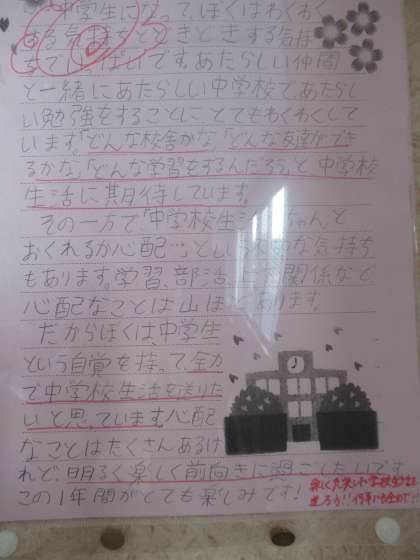 中学生になって、ぼくはわくわく
する気持ちとどきどきする気持
ちでいっぱいです。あたらしい仲間
と一緒にあたらしい中学校であたらし
い勉強をすることにとてもわくわくして
います。「どんな校舎かな」「どんな友達ができ
るかな」「どんな学習をするんだろう」と中学校
生活に期待しています。
その一方で、「中学校生 ちゃんと
おくれるか心配…」という な気持ち
もあります。学習、部活、 関係など、
心配なことは山ほどあります。
だからぼくは中学生
という自覚を持って、全力
で中学校生活を送りた
いと思っています。心配
なことはたくさんあるけ
れど、明るく楽しく前向きに過ごしたいです。
この1年間がとても楽しみです!